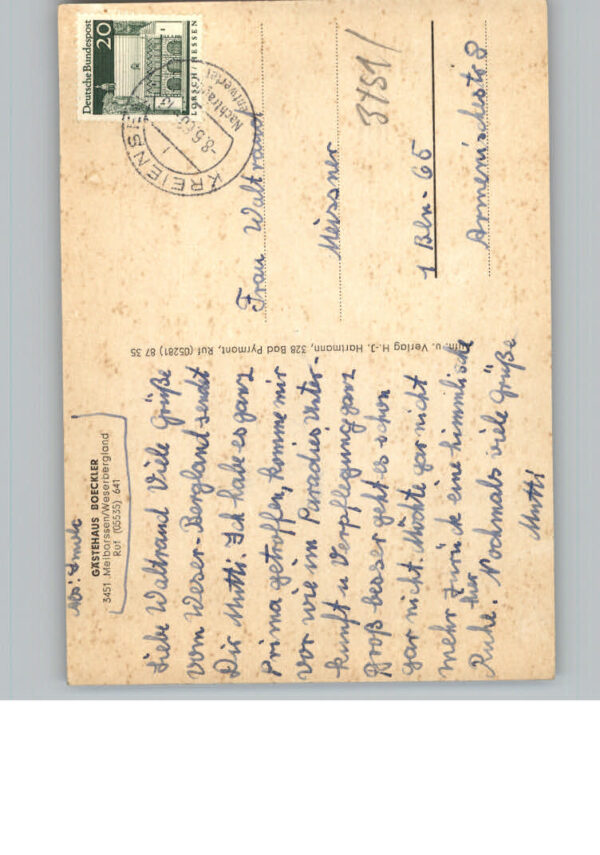 Abs:
GÄSTEHAUS BOECKLER
3451 Meiborssen/Weserbergland
Ruf (05535) 641
Liebe Waltraud Viele Grüße
vom Weser-Bergland sendet
Dir Mutti. Ich habe es ganz
prima getroffen, komme mir
vor wie im Paradies. Unter-
kunft u Verpflegung ganz
groß besser geht es schon
gar nicht. Möchte gar nicht
mehr zurück eine himmlische
Ruhe hier. Nochmals viele Grüße
Mutti
u. Verlag H.-J. Hartmann, 328 Bad Pyrmont, Ruf (05281) 87 35
Deutsche Bundespost
20
LORSCH/HESSEN
KREIENSEN
Nachträglich
entwertet
Frau Waltraud
Meissner
3451/
1 Bln-65
Armenischestr 8